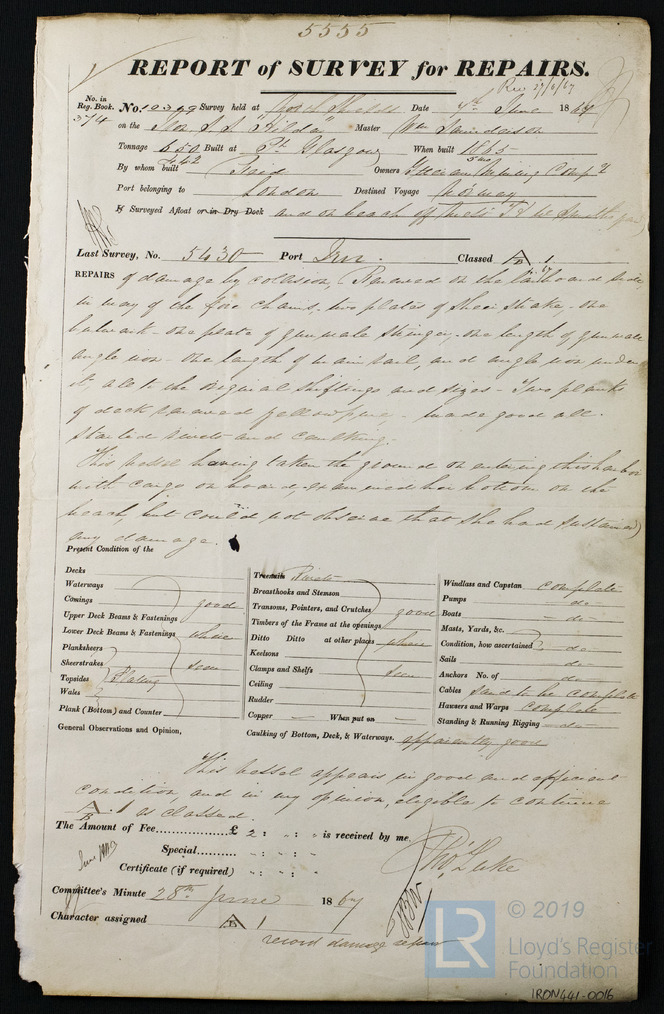 5555
REPORT of SURVEY for REPAIRS.
Rec 27/6/67
No. in Reg. Book. 374 No. 10399 Survey held at North Shields Date 4th June 1867
on the Iron S.S. "Hilda" Master Wm
Tonnage 650 Built at Pt Glasgow When built 1865
442 5 mo
By whom built Reid Owners Mining Compy
Port belonging to London Destined Voyage Norway
If Surveyed Afloat or in Dry Dock and on beach off
Last Survey, No. 5430 Port Irn. Classed A 1
REPAIRS of damage by colision, Renewed on the larboard side,
in way of the fore chains, two plates of sheer strake, one
bulwark - one plate of gunwale stringer, one length of gunwale
angle iron - one length of main rail, and angle iron under
it, all to the original shiftings and sizes - Two planks
of deck renewed yellow pine - made good all
started rivets and caulking.
This vessel having taken the ground on entering this harbor
with cargo on board, examined her bottom on the
beach, but could not observe that she had sustained
any damage.
Present Condition of the
Decks
Waterways
Comings
Upper Deck Beams & Fastenings good
Lower Deck Beams & Fastenings where
Planksheers
Sheerstrakes seen
Topsides Plating
Wales
Plank (Bottom) and Counter
Treenails Rivets
Breasthooks and Stemson
Transoms, Pointers, and Crutches good
Timbers of the Frame at the openings
Ditto Ditto at other places where
Keelsons
Clamps and Shelfs seen
Ceiling
Rudder
Copper — When put on —
Caulking of Bottom, Deck, & Waterways. apparently good
Windlass and Capstan complete
Pumps do
Boats do
Masts, Yards, &c.
Condition, how ascertained do
Sails do
Anchors No. of do
Cables said to be complete
Hausers and Warps Complete
Standing & Running Rigging do
General Observations and Opinion,
This vessel appears in good and efficient
condition, and in my opinion, eligible to continue
A/B 1 as classed.
The Amount of Fee............... £ 2 : " : " is received by me,
Special...... " : " : "
Thos Luke
Certificate (if required) " : " : "
Committee's Minute 28th June 1867
Character assigned A 1
record damage repair
LR
© 2019
Lloyd's Register
Foundation
IRON441-0016